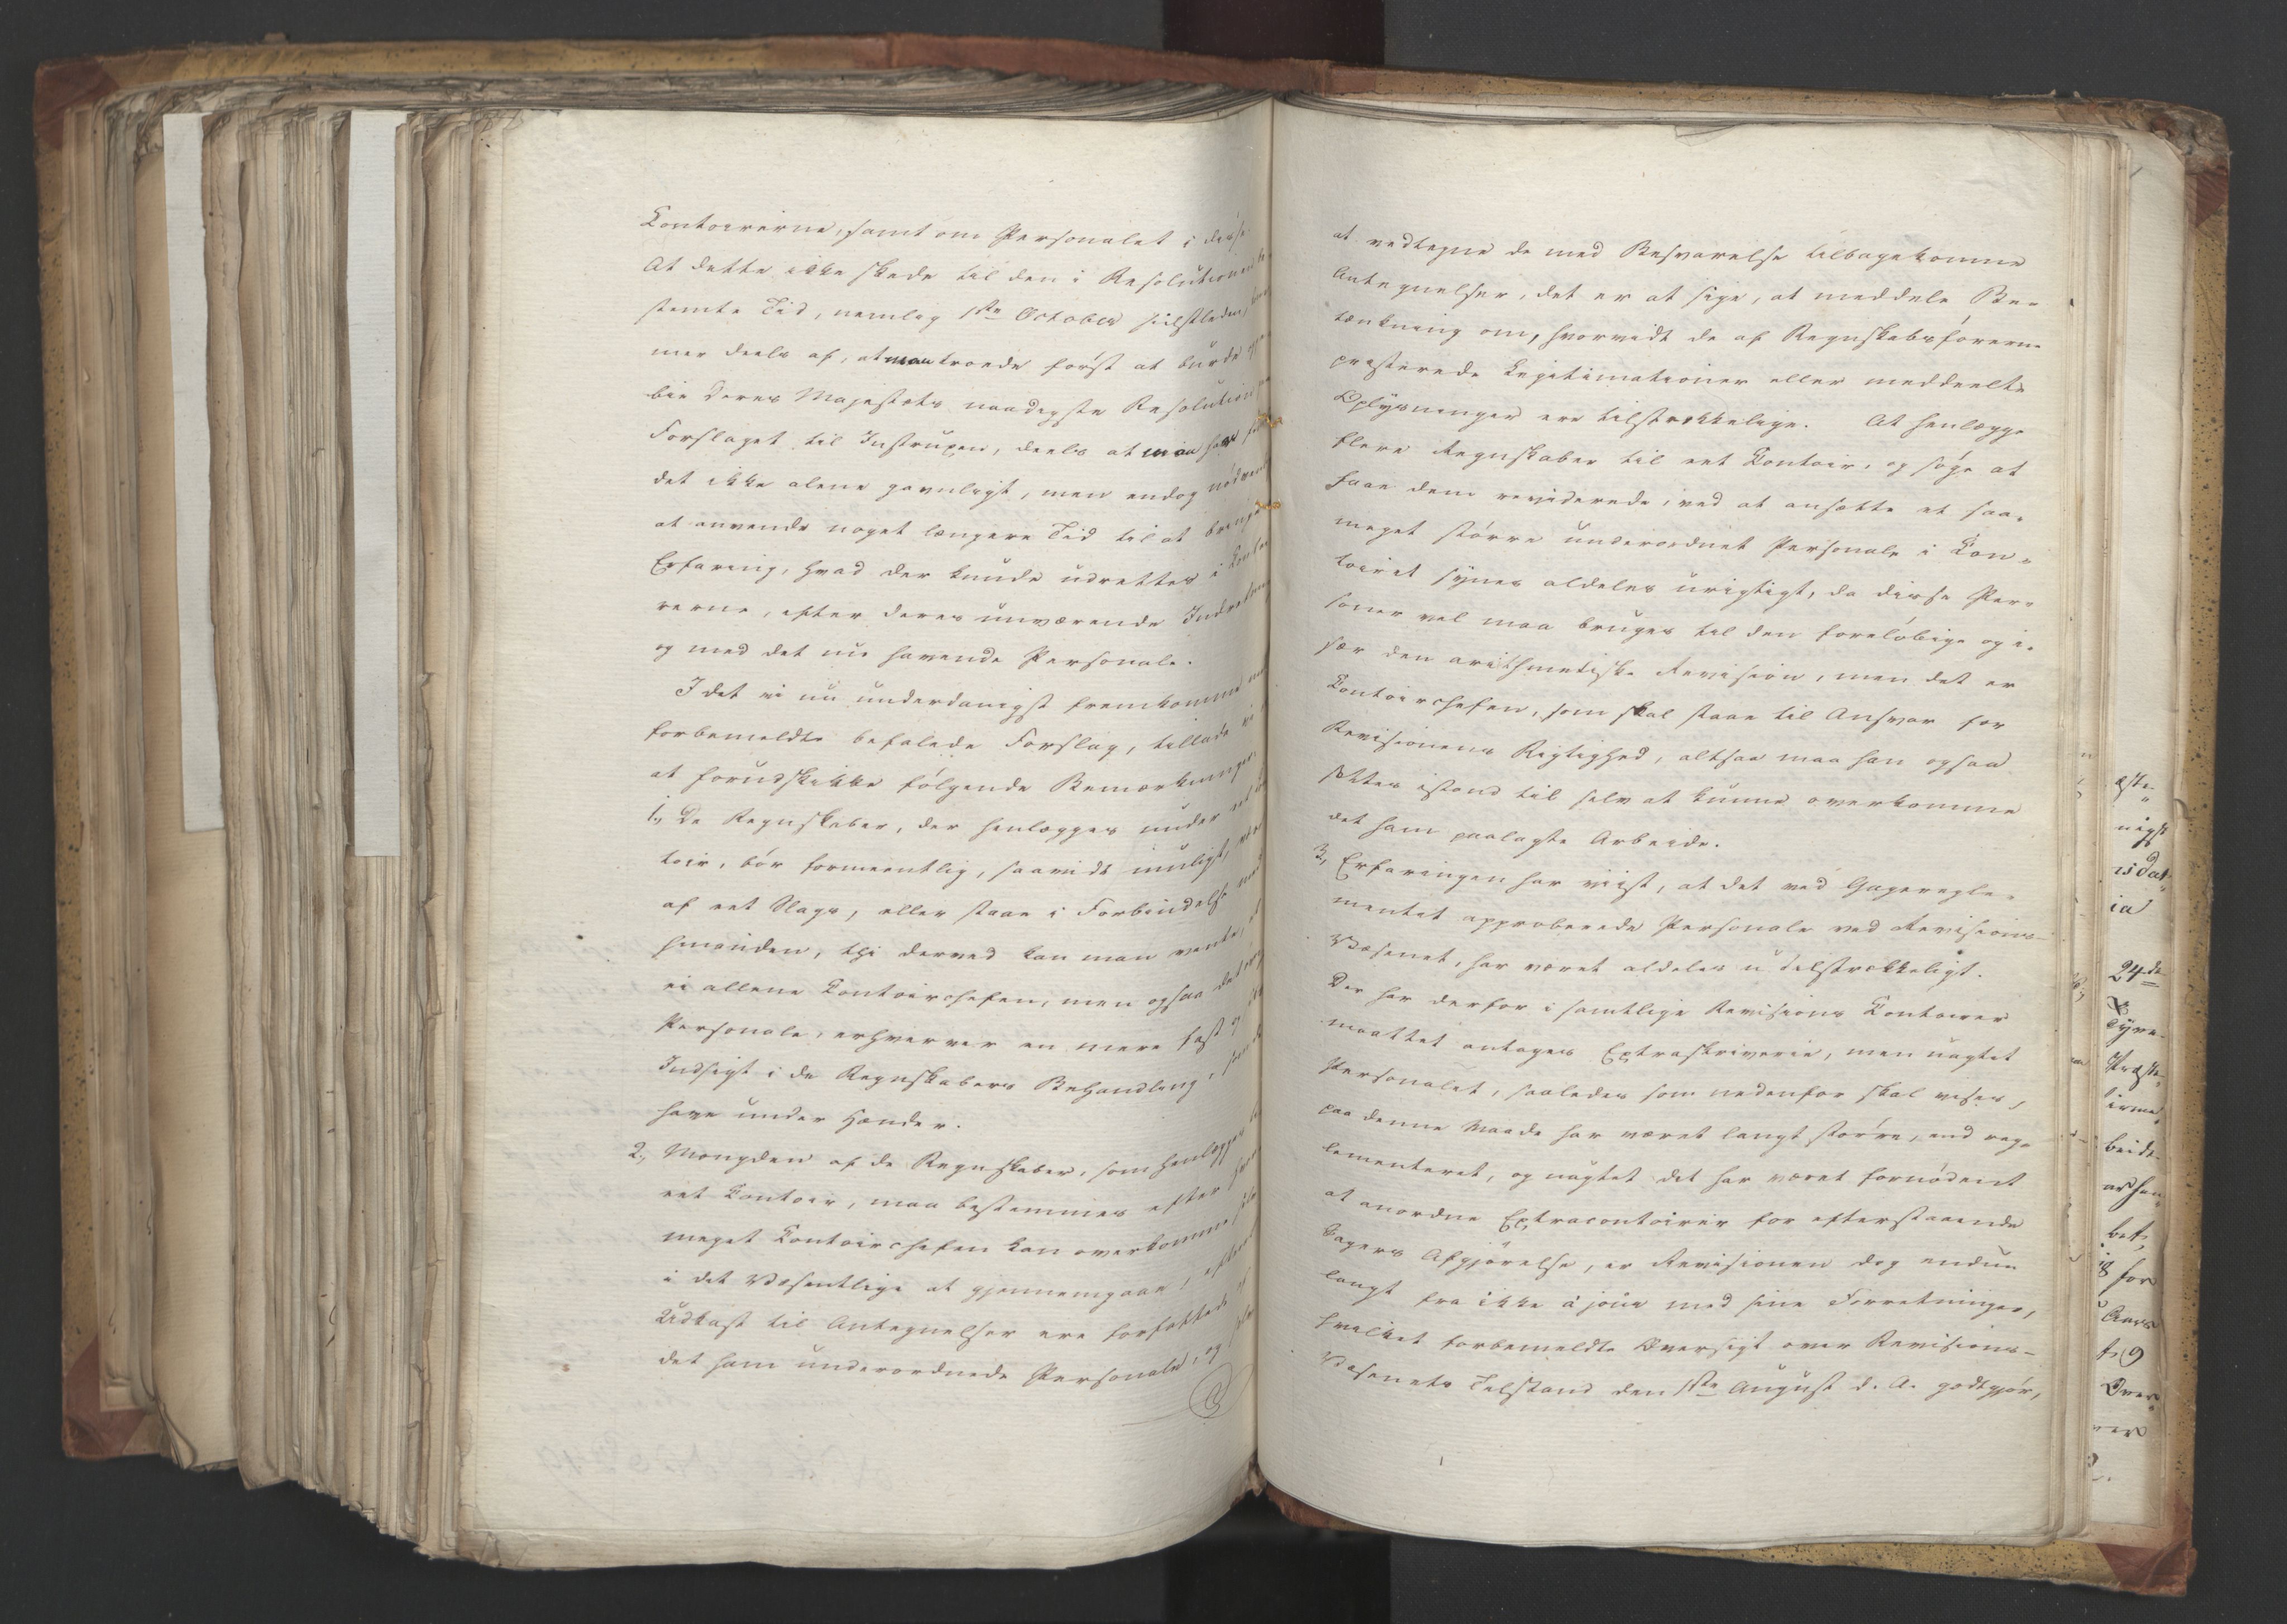 Contoirerne, samt om Personalet i disse.
At dette ikke skede til den i Resolutionen be-
stemte Tid, nemlig 1ste October sidstleden,
mer deels af, at man troede først at burde
bie Deres Majestets naadigste Resolution
Forslaget til Instruxen, deels at man
det ikke alene gavnligt, men endog
at anvende noget længere Tid til at bringe
Erfaring, hvad der kunde udrettes i
rerne, efter deres nuværende
og med det nu havende Personale.
I det vi nu underdanigst fremkomme
forbemeldte befalede Forslag, tillade vi
at forudskikke følgende Bemærkninger.
1., De Regnskaber, der henlægges under eet
toir, bør formeentlig, saavidt muligt,
af eet Slags, eller staae i Forbindelse med
hinanden, thi derved kan man vente,
ei allene Contoirchefen, men ogsaa det
Personale, erhverver en mere fast og
Indsigt i de Regnskabers Behandling, som
have under Hænder.
2., Mængden af de Regnskaber, som henlægges
eet Contoir, maa bestemmes efter
meget Contoirchefen kan overkomme
i det Væsentlige at gjennemgaae,
Udkast til Antegnelser ere forfattede af
det ham underordnede Personale, og
at vedtegne de med Besvarelse tilbagekomne
Antegnelser, det er at sige, at meddele Be-
tænkning om, hvorvidt de af Regnskabsførerne
præsterede Legitimationer eller meddeelte
Oplysninger ere tilstrækkelige. At henlægge
flere Regnskaber til eet Contoir, og søge at
faae dem reviderede, ved at ansætte et saa-
meget større underordnet Personale i Con-
toiret synes aldeles urigtigt, da disse Per-
soner vel maa bruges til den foreløbige og i-
sær den arithmetiske Revision, men det er
Contoirchefen, som skal staae til Ansvar for
Revisionens Rigtighed, altsaa maa han ogsaa
sættes istand til selv at kunne overkomme
det ham paalagte Arbeide.
3, Erfaringen har viist, at det ved Gageregle-
mentet approberede Personale ved Revisions-
Væsenet, har været aldeles utilstrækkeligt.
Der har derfor i samtlige Revisions Contoirer
maattet antages Extraskrivere, men uagtet
Personalet, saaledes som nedenfor skal vises,
paa denne Maade har været langt større, end reg-
lementeret, og uagtet det har været fornødent
at anordne Extracontoirer for efterstaaende
Sagers Afgjørelse, er Revisionen dog endnu
langt fra ikke à jour med sine Forretninger,
hvilket forbemeldte Oversigt over Revisions-
Væsenets Tilstand den 1ste August d. A. godtgjør,
24de
for
Aars